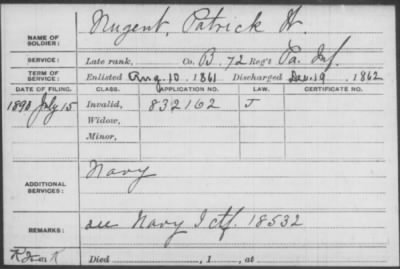 NAME OF SOLDIER: Nugent, Patrick H.
SERVICE: Late rank, Co. B. 72 Reg't Pa. Inf.
TERM OF SERVICE: Enlisted Aug. 10, 1861 Discharged Dec. 19, 1862
DATE OF FILING. CLASS. APPLICATION NO. LAW. CERTIFICATE NO.
1890 July 15 Invalid, 832162 J
Widow,
Minor,
ADDITIONAL SERVICES: Navy
REMARKS: see Navy I ctf. 18532
Died , 1 , at